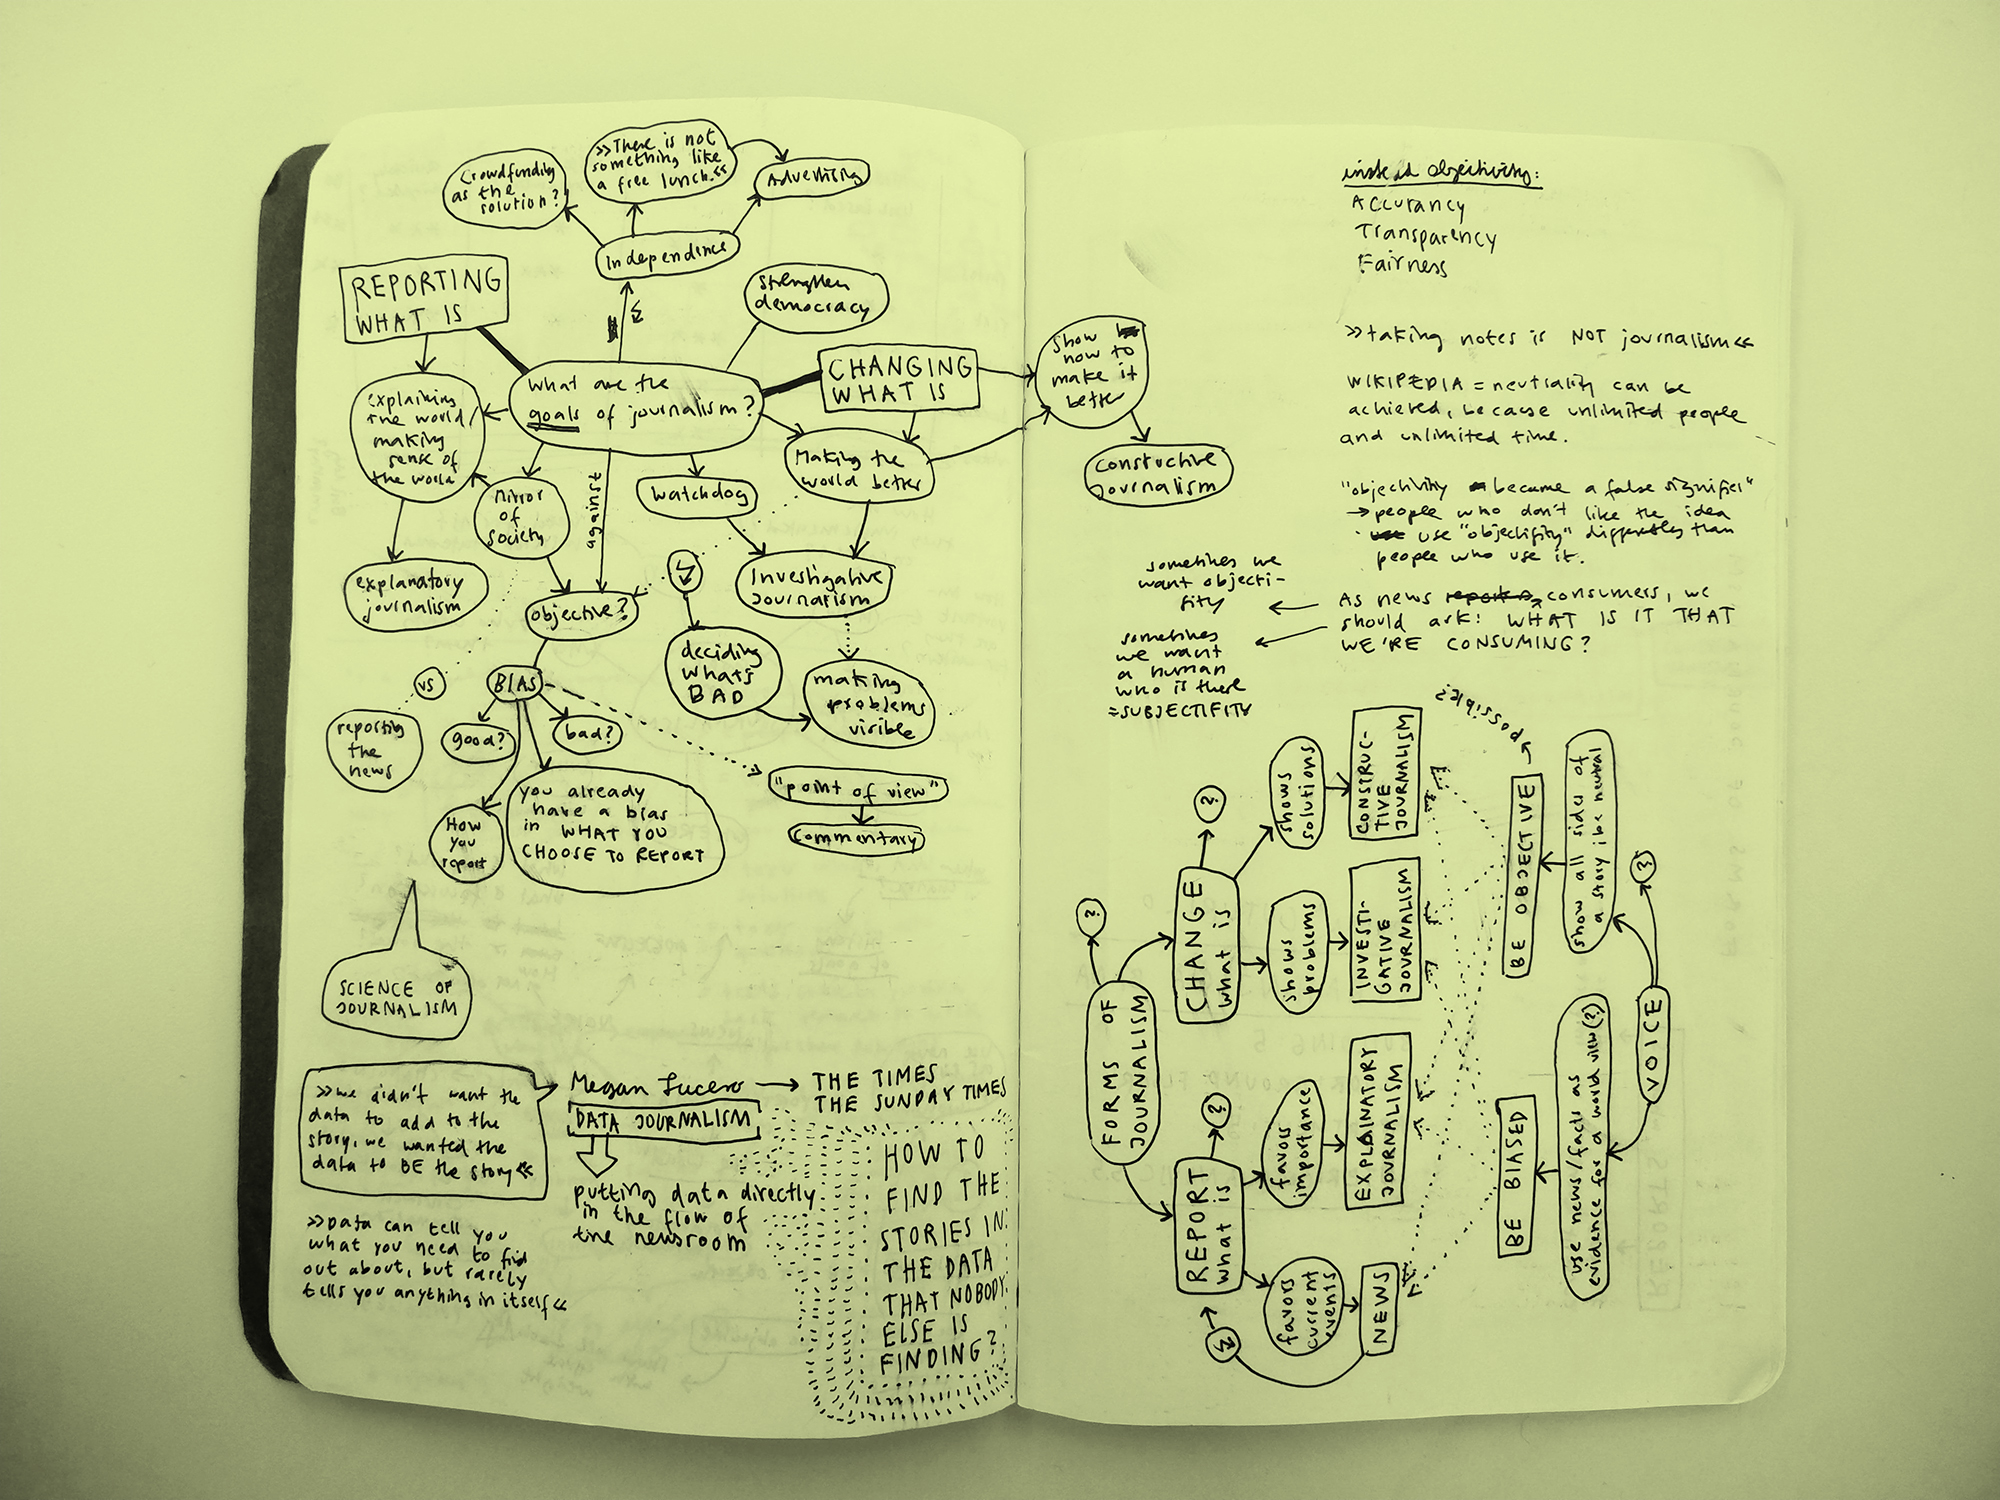 »There is not
something like
a free lunch.«
Advertising
Crowdfunding
as the
solution?
Independence
REPORTING
WHAT IS
Strengthen
democracy
CHANGING
WHAT IS
What are the
goals of journalism?
explaining
the world/
making
sense of
the world
mirror
of
society
against
watchdog
Making the
world better
explanatory
journalism
objective?
Investigative
Journalism
vs
BIAS
deciding
whats
BAD
making
problems
visible
reporting
the
news
good?
bad?
"point of view"
commentary
How
you
report
you already
have a bias
in WHAT YOU
CHOOSE TO REPORT
SCIENCE OF
JOURNALISM
»we didn't want the
data to add to the
story, we wanted the
data to BE the story«
Megan Lucero
THE TIMES
THE SUNDAY TIMES
DATA JOURNALISM
putting data directly
in the flow of
the newsroom
»Data can tell you
what you need to find
out about, but rarely
tells you anything in itself«
HOW TO
FIND THE
STORIES IN
THE DATA
THAT NOBODY
ELSE IS
FINDING?
show
how to
make it
better
constuctive
Journalism
objectivity:
Accurancy
Transparency
Fairness
»taking notes is NOT journalism«
WIKIPEDIA = neutrality can be
achieved, because unlimited people
and unlimited time.
"objectivity became a false signifier"
→ people who don't like the idea
use "objectifity" differently than
people who use it.
As news consumers, we
should ask: WHAT IS IT THAT
WE'RE CONSUMING?
sometimes we
want objecti-
fity
sometimes
we want
a human
who is there
=SUBJECTIFITY
FORMS OF
JOURNALISM
?
CHANGE
what is
?
shows
solutions
CONSTRUC-
TIVE
JOURNALISM
shows
problems
INVESTI-
GATIVE
JOURNALISM
REPORT
what is
?
favors
importance
EXPLANATORY
JOURNALISM
favors
current
events
NEWS
possible?
BE OBJECTIVE
show all sides of
a story; be neutral
?
VOICE
BE BIASED
use news/facts as
evidence for a world view(?)